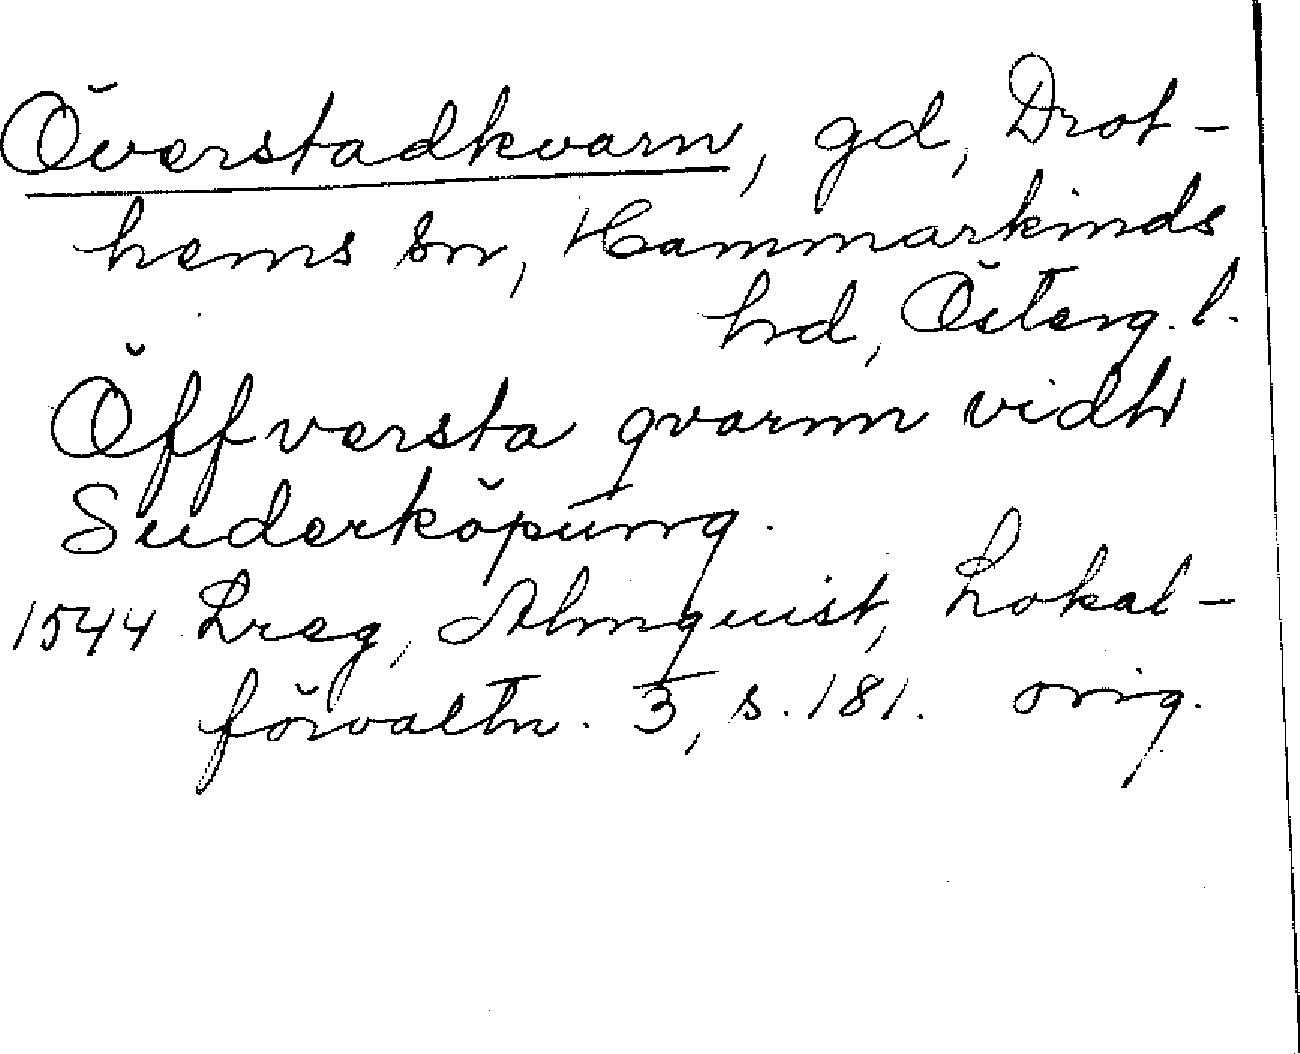 Överstadkvarn, gd, Drot-
hems sn, Hammarkinds
hd, Österg. l.
Öffversta qvarnn vidh
Suderköpung.
1544 Lreg, Almquist, Lokal-
förvaltn. 3, s. 181. orig.